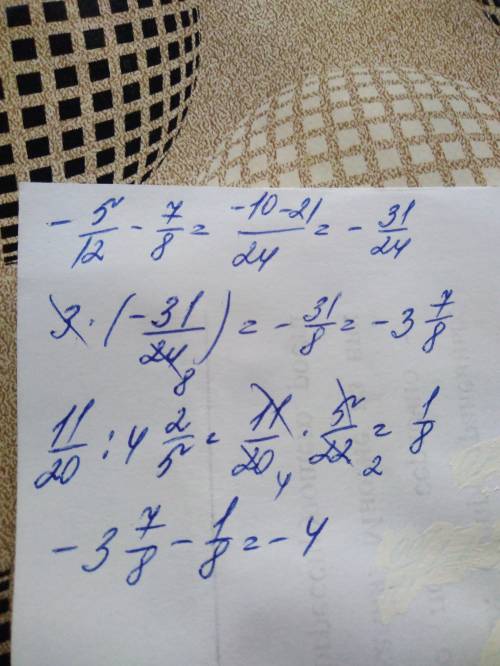 -5/12 - 7/8 = (-10-21)/24 = -31/24
3 · (-31/24 8) = -31/8 = -3 7/8
11/20 : 4 2/5 = 11/20 4 · 5/22 2 = 1/8
-3 7/8 - 1/8 = -4